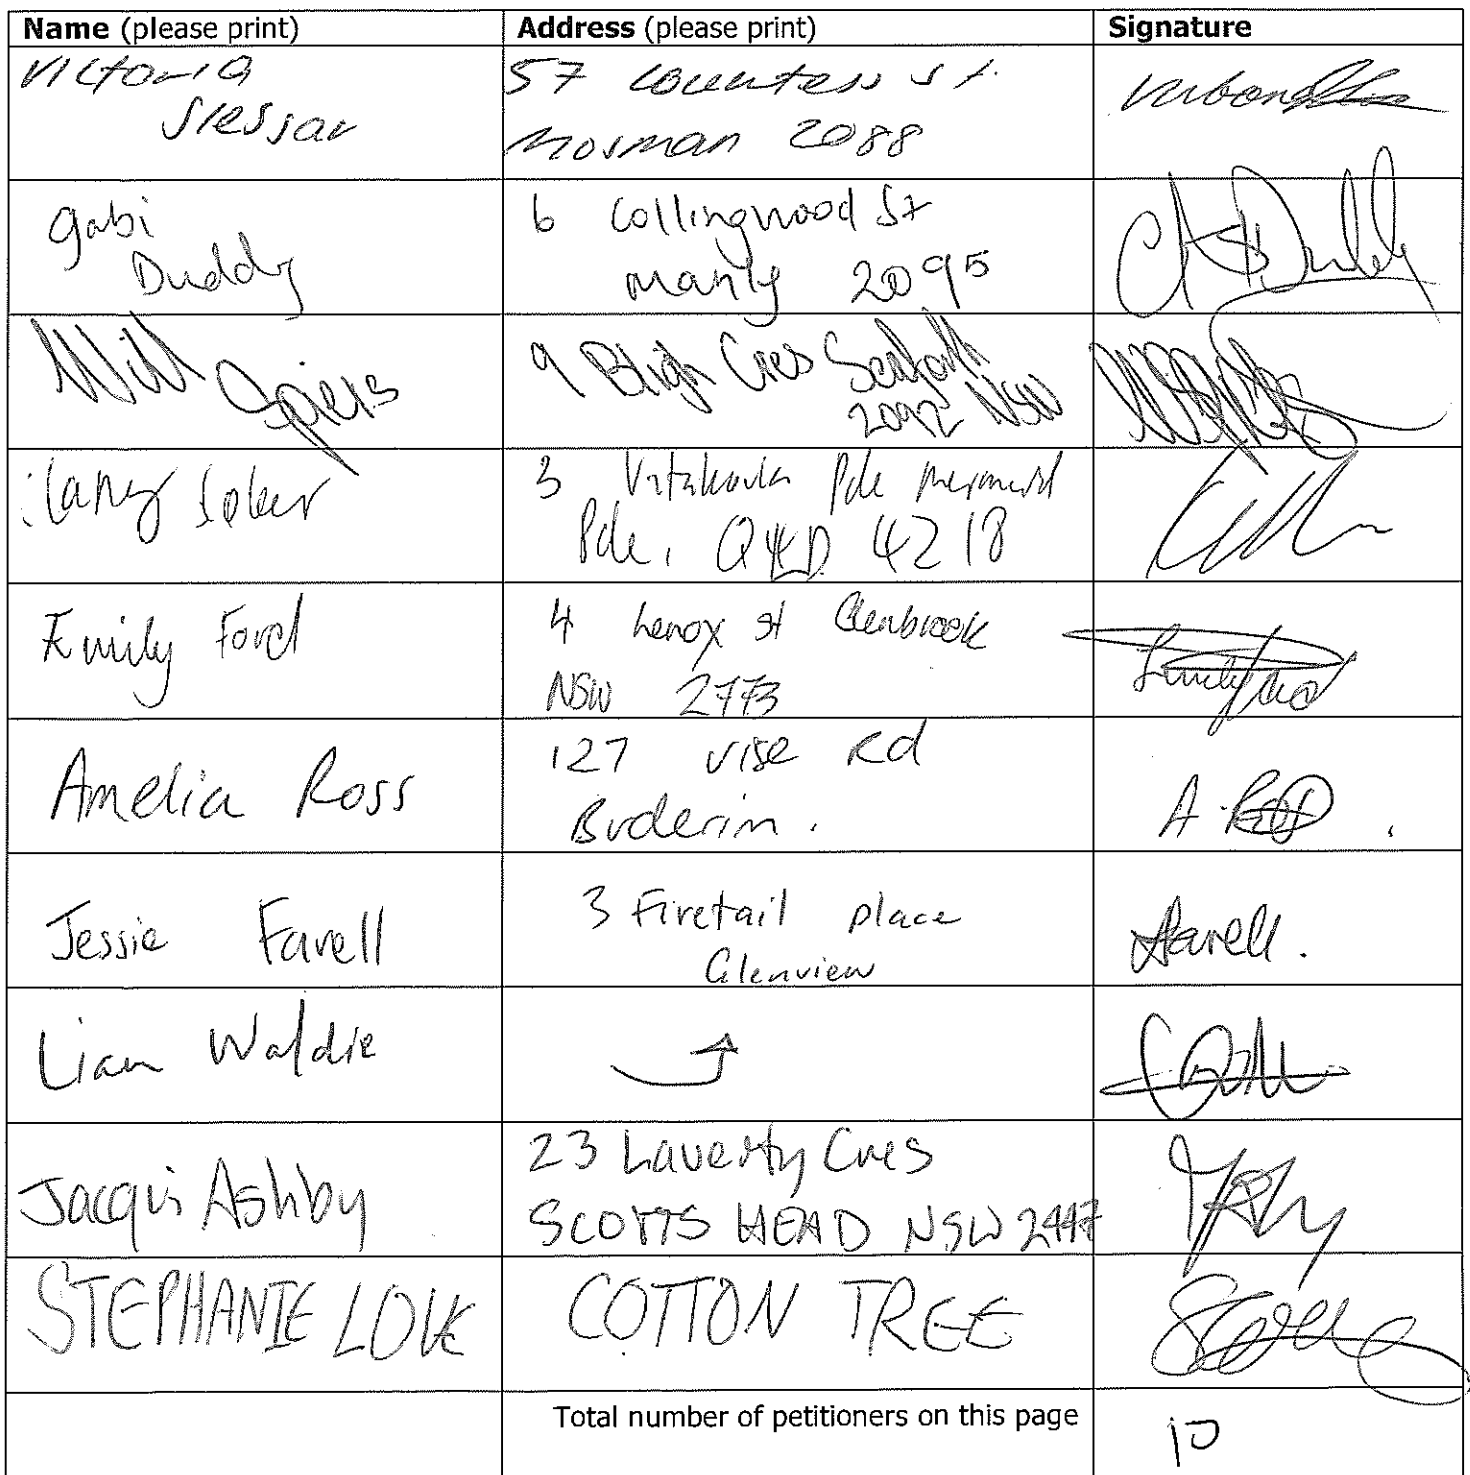 Name (please print) Address (please print) Signature
Victoria 57 Countess St.
Slessar Mosman 2088
Gabi 6 Collingwood St
Duddy Manly 2095
Will Spiers 9 Bligh Cres Seaforth
2092 NSW
3 Pde Mermaid
Pde, QLD 4218
Emily Ford 4 Lenox St Glenbrook
NSW 2773
Amelia Ross 127 Vise Rd
Buderim.
Jessie Farell 3 Firetail place
Glenview
Liam Waldie
Jacqui Ashby 23 Laverty Cres
SCOTTS HEAD NSW 2447
STEPHANIE LOVE COTTON TREE
Total number of petitioners on this page 10